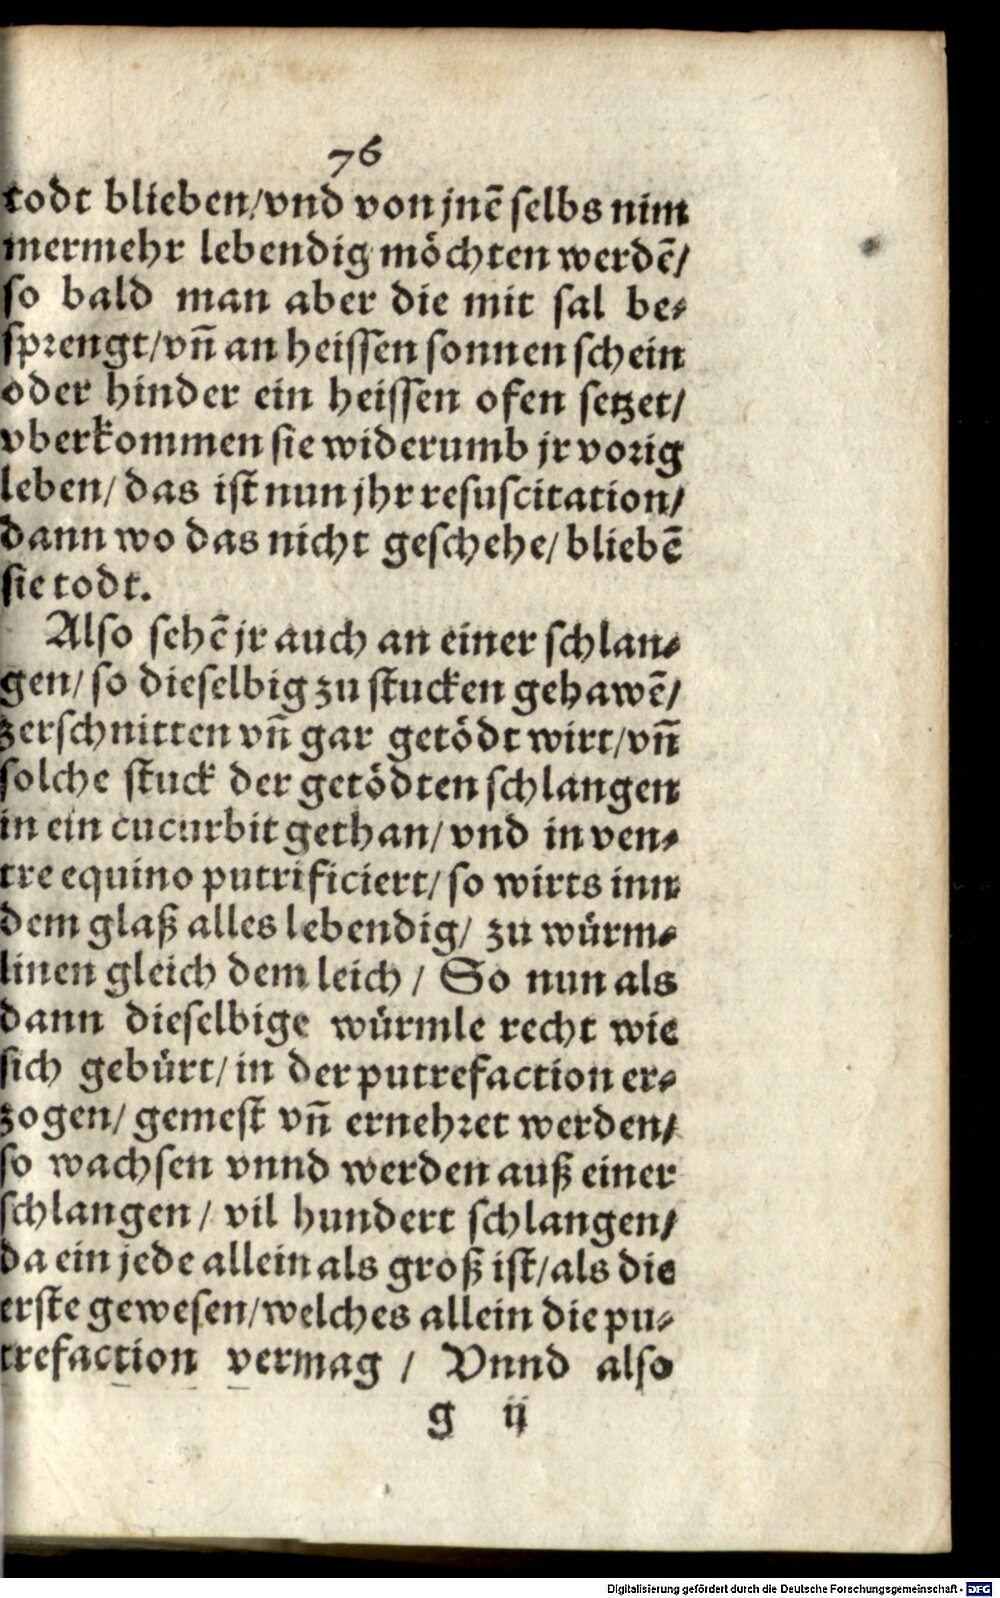 76
todt blieben/vnd von jnē selbs nim
mermehr lebendig möchten werdē/
so bald man aber die mit sal be⸗
sprengt/vñ an heissen sonnen schein
oder hinder ein heissen ofen setzet/
vberkommen sie widerumb jr vorig
leben/ das ist nun jhr resuscitation/
dann wo das nicht geschehe/ bliebē
sie todt.
Also sehē jr auch an einer schlan⸗
gen/ so dieselbig zu stucken gehawē/
zerschnitten vñ gar getödt wirt/vñ
solche stuck der getödten schlangen
in ein cucurbit gethan/ vnd in ven⸗
tre equino putrificiert/ so wirts inn
dem glaß alles lebendig/ zu würm⸗
linen gleich dem leich / So nun als
dann dieselbige würmle recht wie
sich gebürt/ in der putrefaction er⸗
zogen/ gemest vñ ernehret werden/
so wachsen vnnd werden auß einer
schlangen / vil hundert schlangen/
da ein jede allein als groß ist/als die
erste gewesen/welches allein die pu⸗
trefaction vermag / Vnnd also
g ij
Digitalisierung gefördert durch die Deutsche Forschungsgemeinschaft - DFG